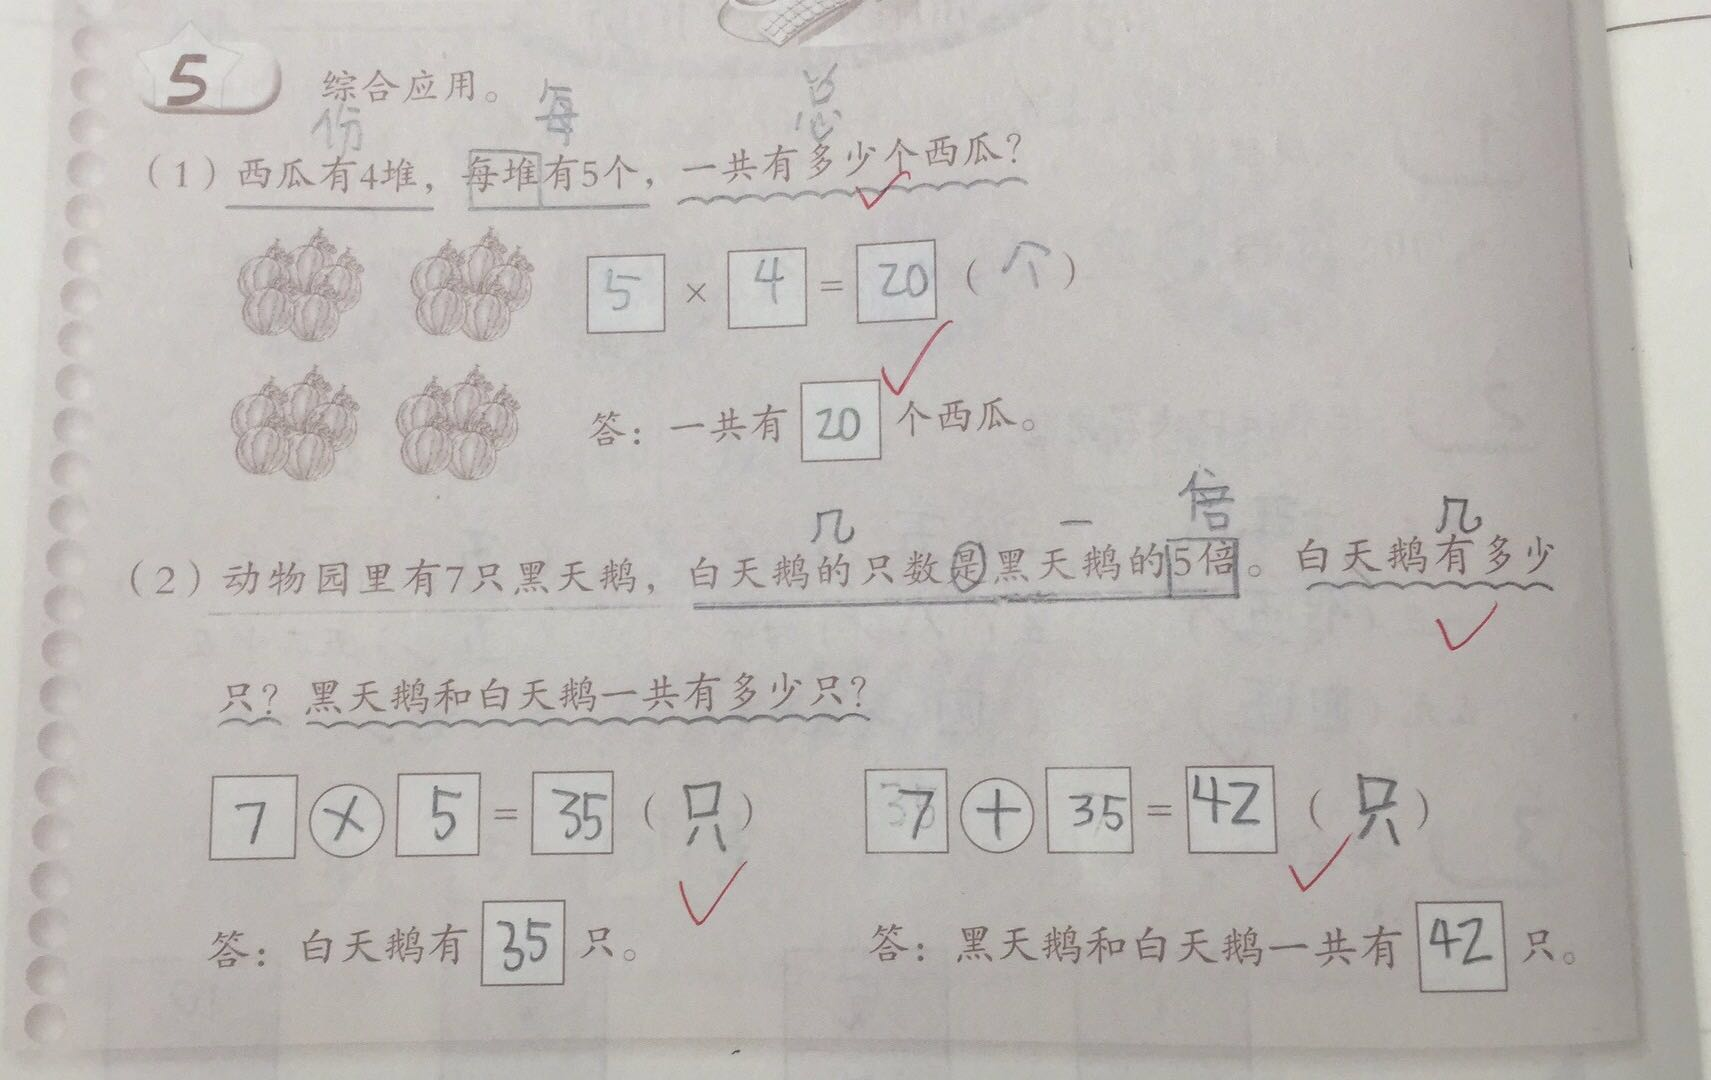 5 综合应用。
份 每 总
(1)西瓜有4堆，每堆有5个，一共有多少个西瓜？
5 × 4 = 20 (个)
答：一共有 20 个西瓜。
几 一 倍 几
(2)动物园里有7只黑天鹅，白天鹅的只数是黑天鹅的5倍。白天鹅有多少
只？黑天鹅和白天鹅一共有多少只？
7 × 5 = 35 (只) 7 + 35 = 42 (只)
答：白天鹅有 35 只。 答：黑天鹅和白天鹅一共有 42 只。